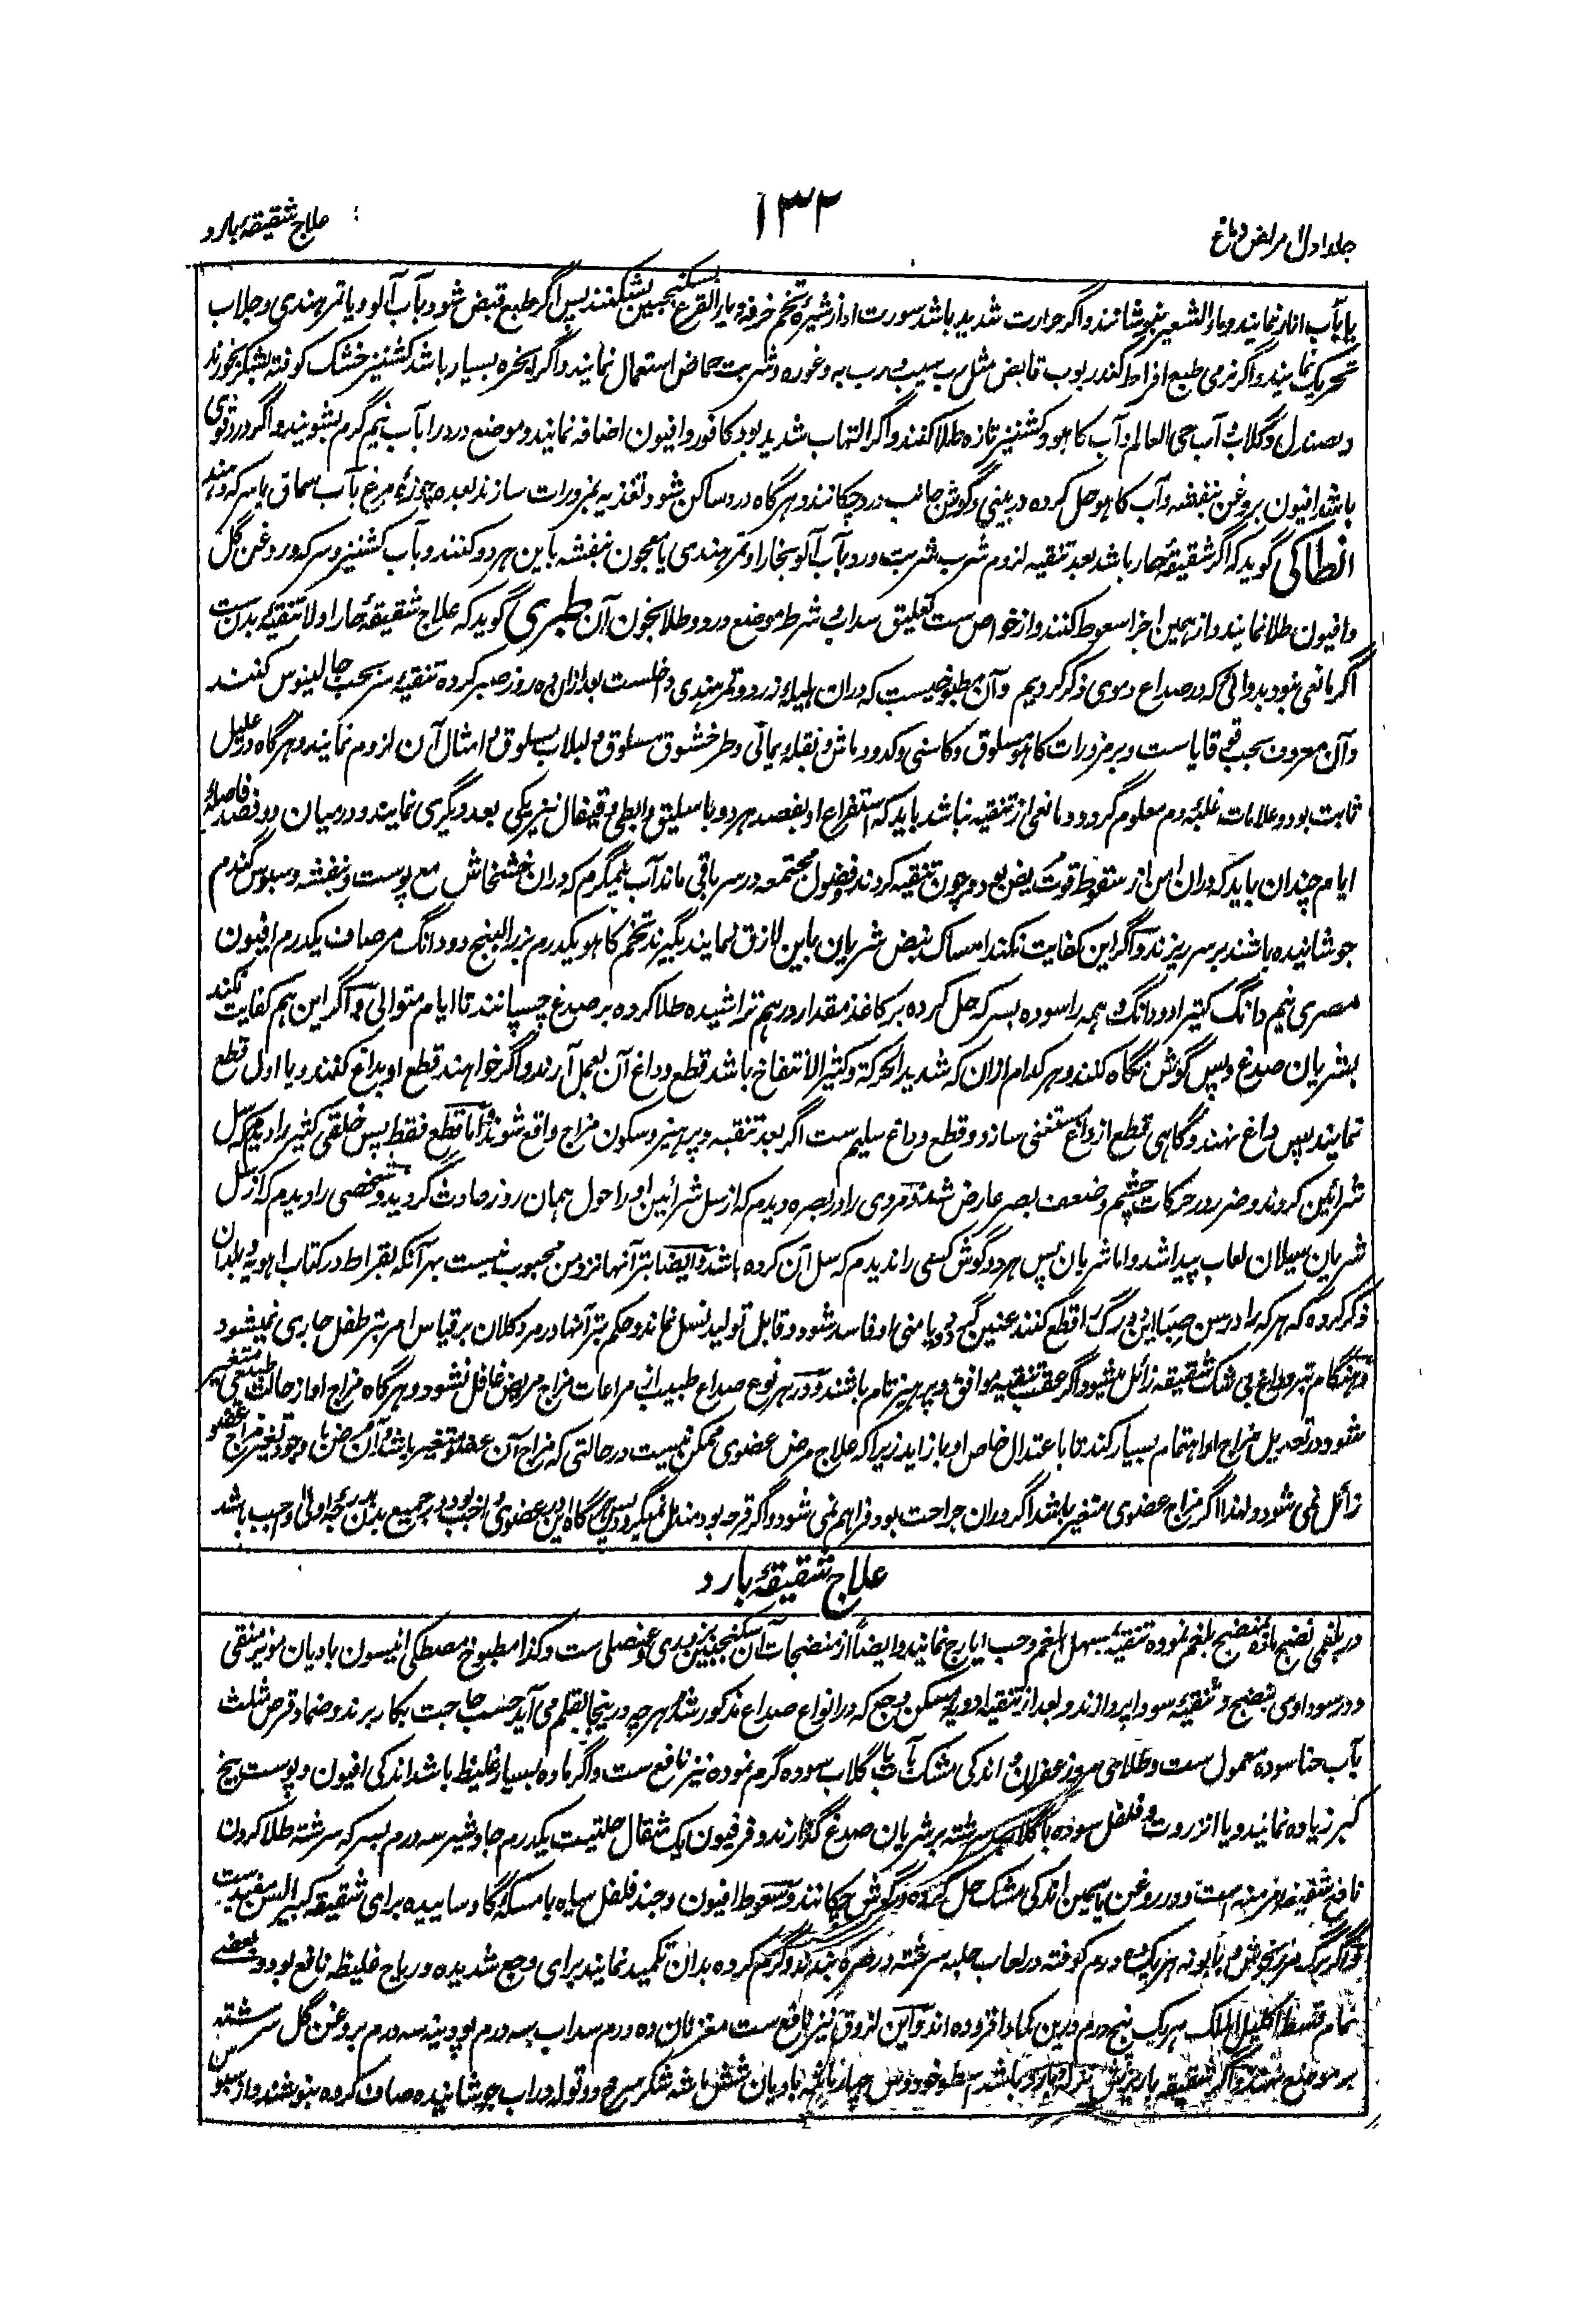 جلد اول امراض دماغ
۱۳۲
علاج شقیقه بارد
یا بآب انار نمایند و ماء الشعیر بنوشانند و اگر حرارت شدید باشد سورت او از شیرهٔ تخم خرفه و ماء القرع بسکنجبین بشکنند پس اگر طبع قبض شود بآب آلو و یا تمر هندی و جلاب
تحریک نمایند و اگر نرمی طبع افراط کند ربوب قابض مثل رب سیب و رب به و غوره و شربت حماض استعمال نمایند و اگر ابخره بسیار باشد کشنیز خشک کوفته بشکر بخورند
و بصندل و گلاب و آب حی العالم و آب کاهو و کشنیز تازه طلا کنند و اگر التهاب شدید بود کافور و افیون اضافه نمایند و موضع درد را بآب نیم گرم بشویند و اگر درد قوی
باشد افیون بروغن بنفشه و آب کاهو حل کرده در بینی و گوش جانب درد چکانند و هرگاه درد ساکن شود تغذیه بمزورات سازند بعده چوزهٔ مرغ بآب سماق یا سرکه دهند
انطاکی گوید که اگر شقیقهٔ حار باشد بعد تنقیه لزوم شرب شربت ورد بآب آلو بخارا و تمر هندی یا معجون بنفشه باین هر دو کنند و بآب کشنیز و سرکه و روغن گل
و افیون طلا نمایند و از همین اجزا سعوط کنند و از خواص ست تعلیق سداب و شرط موضع درد و طلا بخون آن طبری گوید که علاج شقیقهٔ حار اولا تنقیهٔ بدن ست
اگر مانعی نبود بدوائی که در صداع دموی ذکر کردیم و آن مطبوخیست که دران هلیلهٔ زرد و تمر هندی داخلست بعد ازان ده روز صبر کرده تنقیهٔ سر بحب جالینوس کنند
و آن معروف بحب قوقایا ست و بر مزورات کاهو مسلوق و کاسنی و کدو و ماش و بقلهٔ یمانی و طرخشقوق مسلوق و لبلاب مسلوق و امثال آن لزوم نمایند و هرگاه در علیل
ثابت بود و علامات غلبهٔ دم معلوم گردد و مانعی از تنقیه نباشد باید که استفراغ او بفصد هر دو باسلیق و ابطی و قیفال نیز یکی بعد دیگری نمایند و درمیان دو فصد فاصلهٔ
ایام چندان باید که دران امن از سقوط قوت یض بود و چون تنقیه کردند و فضول مجتمعه در سر باقی ماند آب نیمگرم که دران خشخاش مع پوست و بنفشه و سبوس گندم
جوشانیده باشند بر سر ریزند و اگر این کفایت نکند امساک نبض شریان باین لازق نمایند بگیرند تخم کاهو یکدرم بزرالبنج دو دانگ مر صاف یکدرم افیون
مصری نیم دانگ کتیرا دو دانگ و همه را سوده بسرکه حل کرده بر کاغذ مقدار درهم تراشیده طلا کرده بر صدغ چسپانند تا ایام متوالی و اگر این هم کفایت نکند
بشریان صدغ و پس گوش نگاه کنند و هر کدام ازان که شدید الحرکة و کثیر الانتفاخ باشد قطع و داغ آن بعمل آرند و اگر خواهند قطع او بداغ کنند و یا اول قطع
نمایند پس داغ نهند و گاهی قطع از داغ مستغنی سازد و قطع و داغ سلیم ست اگر بعد تنقیه و پرهیز و سکون مزاج واقع شوند و اما قطع فقط پس خلقی کثیر را دیدیم که سل
شرائین کردند و ضرر در حرکات چشم و ضعف بصر عارض شد و مردی را در بصره دیدم که از سل شرائین او را حول همان روز حادث گردید و شخصی را دیدم که از سل
شریان سیلان لعاب پیدا شد و اما شریان پس هر دو گوش کسی را ندیدم که سل آن کرده باشد و ایضا بتر آنها نزد من محبوب نیست بهر آنکه بقراط در کتاب اهویه و بلدان
ذکر کرده که هر که را در سن صبا این دو رگ را قطع کنند عنین گردد و یا منی او فاسد شود و قابل تولید نسل نماند و حکم بتر آنها در مرد کلان بر قیاس امر بتر طفل جاری نمیشود
و هنگام بتر و داغ بی شک شقیقه زائل میشود اگر عقب تنقیه موافق و پرهیز تام باشند و در هر نوع صداع طبیب از مراعات مزاج مریض غافل نشود و هرگاه مزاج او از حالت طبیعی متغیر
شود در تعدیل مزاج او اهتمام بسیار کند تا باعتدال خاص او باز آید زیرا که علاج مرض عضوی ممکن نیست در حالتی که مزاج آن عضو متغیر باشد و آن مرض با وجود تغیر مزاج عضو
زائل نمی شود و لهذا اگر مزاج عضوی متغیر باشد اگر دران جراحت بود فراهم نمی شود و اگر قرحه بود مندمل نمیگردد پس هرگاه این در عضوی واجب بود در جمیع بدن بدرجهٔ اولی واجب باشد
علاج شقیقهٔ بارد
در بلغمی نضج ماده بمنضج بلغم نموده تنقیه بمسهل بلغم و حب ایارج نمایند و ایضاً از منضجات آن سکنجبین بزوری و عنصلی ست و کذا مطبوخ مصطکی انیسون بادیان مویز منقی
و در سوداوی بنضج و تنقیهٔ سودا پردازند و بعد از تنقیه ادویهٔ مسکن وجع که در انواع صداع مذکور شد و هرچه درینجا بقلم می آید حسب حاجت بکار برند و ضماد قرص مثلث
بآب حنا سوده معمول ست و طلای مر و زعفران و اندکی مشک بآب یا گلاب سوده گرم نموده نیز نافع ست و اگر ماده بسیار غلیظ باشد اندکی افیون و پوست بیخ
کبر زیاده نمایند و یا انزروت و فلفل سوده با گلاب سرشته بر شریان صدغ گذارند و فرفیون یک مثقال حلتیت یکدرم جاوشیر سه درم بسرکه سرشته طلا کردن
نافع شقیقه مزمنه ست و در روغن یاسمین اندکی مشک حل کرده در گوش چکانند و سعوط افیون و جند فلفل سیاه با مسکهٔ گاو ساییده برای شقیقه کبیر السن مفید ست
و اگر برگ مرزنجوش و بابونه هر یک ده درم کوفته در لعاب حلبه سرشته در صره بندند و گرم کرده بدان تکمید نمایند برای وجع شدیده و ریاح غلیظه نافع بود و بعضی
نمام قسط اکلیل الملک هر یک پنج درم درین کماد افزوده اند و این لزوق نیز نافع ست مغز نان ده درم سداب سه درم پودینه سه درم بروغن گل سرشته
بر موضع نهند و اگر شقیقه باریزش نزلهٔ بارد باشد اسطوخودوس چهار ماشه بادیان شش ماشه شکر سرخ دو توله در آب جوشانیده صاف کرده بنوشند و از سبوس